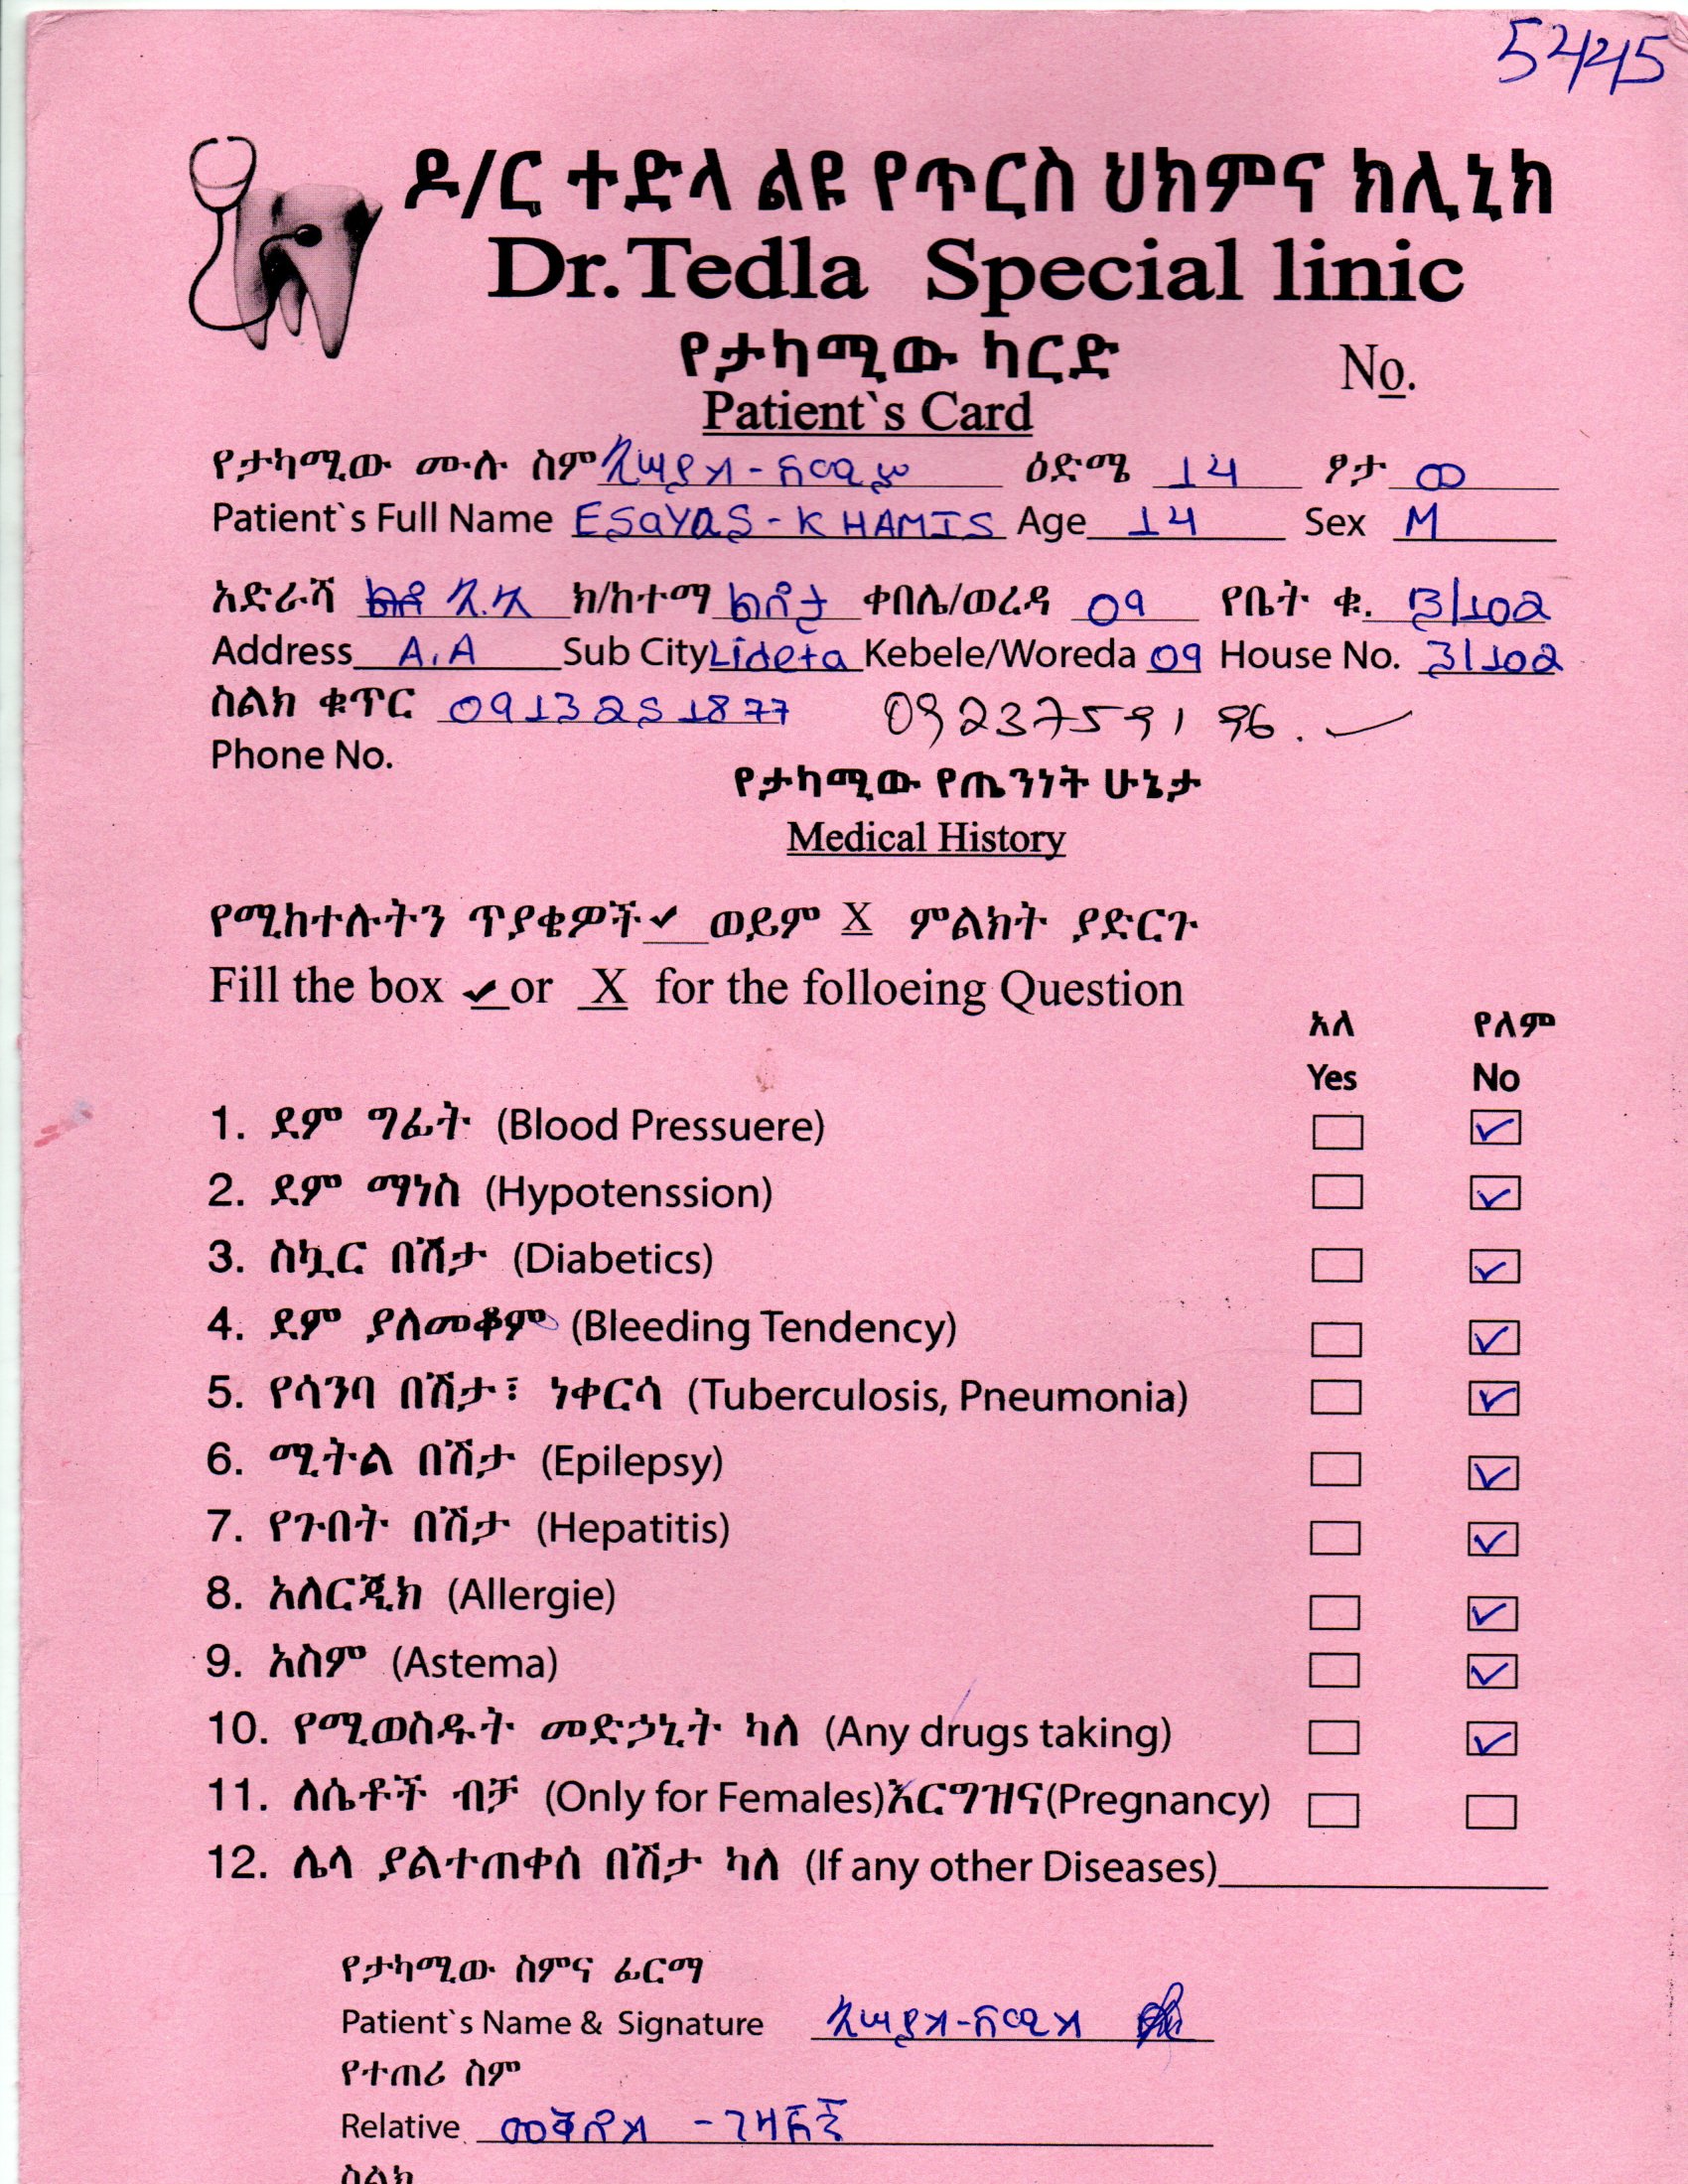 5445
ዶ/ር ተድላ ልዩ የጥርስ ህክምና ክሊኒክ
Dr.Tedla Special linic
የታካሚው ካርድ No.
Patient`s Card
የታካሚው ሙሉ ስም ዕድሜ 14 ፆታ ወ
Patient`s Full Name ESaYaS - KHAMIS Age 14 Sex M
አድራሻ አ.አ ክ/ከተማ ልደታ ቀበሌ/ወረዳ 09 የቤት ቁ. 3/102
Address A.A Sub City Lideta Kebele/Woreda 09 House No. 3/102
ስልክ ቁጥር 0913251877 0923759196.
Phone No.
የታካሚው የጤንነት ሁኔታ
Medical History
የሚከተሉትን ጥያቄዎች ✔ ወይም X ምልክት ያድርጉ
Fill the box ✔ or X for the folloeing Question
አለ የለም
Yes No
1. ደም ግፊት (Blood Pressuere) ✓
2. ደም ማነስ (Hypotenssion) ✓
3. ስኳር በሽታ (Diabetics) ✓
4. ደም ያለመቆም (Bleeding Tendency) ✓
5. የሳንባ በሽታ፣ ነቀርሳ (Tuberculosis, Pneumonia) ✓
6. ሚትል በሽታ (Epilepsy) ✓
7. የጉበት በሽታ (Hepatitis) ✓
8. አለርጂክ (Allergie) ✓
9. አስም (Astema) ✓
10. የሚወስዱት መድኃኒት ካለ (Any drugs taking) ✓
11. ለሴቶች ብቻ (Only for Females)እርግዝና(Pregnancy)
12. ሌላ ያልተጠቀሰ በሽታ ካለ (If any other Diseases)
የታካሚው ስምና ፊርማ
Patient`s Name & Signature
የተጠሪ ስም
Relative
ስልክ